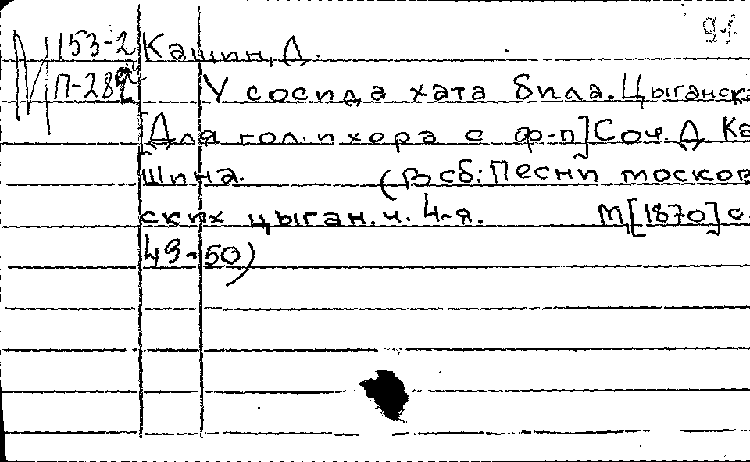 91
М 153-2 Кашин, Д.
П-282 У сосида хата била. Цыганска
[Для гол. и хора с ф-п] Соч. Д. Ка
шина. (В сб: Песни москов
ских цыган. ч. 4-я. М, [1870] с.
49-50)